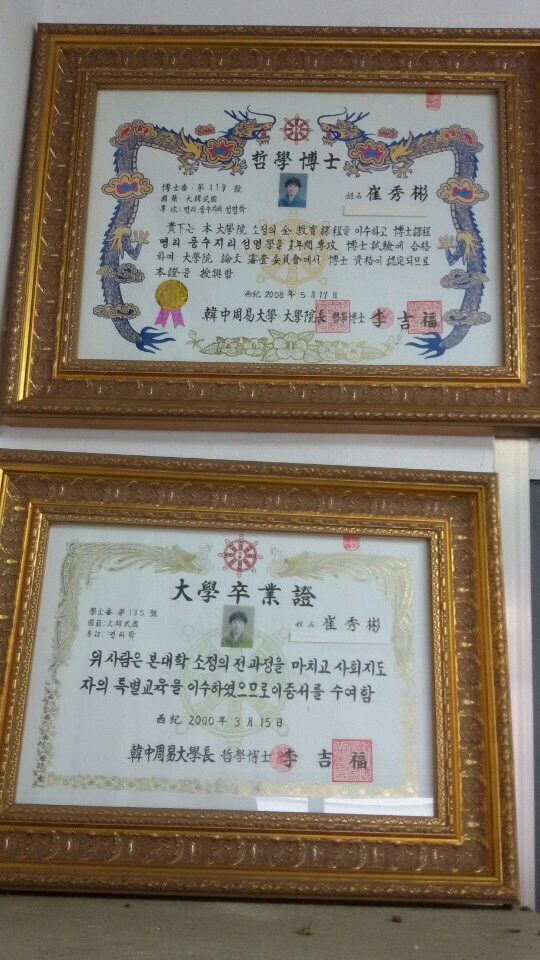 哲學博士
博士番:第119號
國籍:大韓民國
專攻:명리 풍수지리 성명학
姓名 崔秀彬
貴下는 本 大學院 소정의 全 敎育課程을 이수하고 博士課程
명리 풍수지리 성명學을 多年間 專攻 博士 試驗에 合格
하여 大學院 論文 審査 委員會에서 博士 資格이 認定되므로
本證을 授與함
西紀 2008年 5月 17日
韓中周易大學·大學院長 哲學博士 李吉福
大學卒業證
學士番 第135號
國籍:大韓民國
專攻:명리학
姓名 崔秀彬
위 사람은 본대학 소정의 전과정을 마치고 사회지도
자의 특별교육을 이수하였으므로 이증서를 수여함
西紀 2000年 3月 15日
韓中周易大學長 哲學博士 李吉福